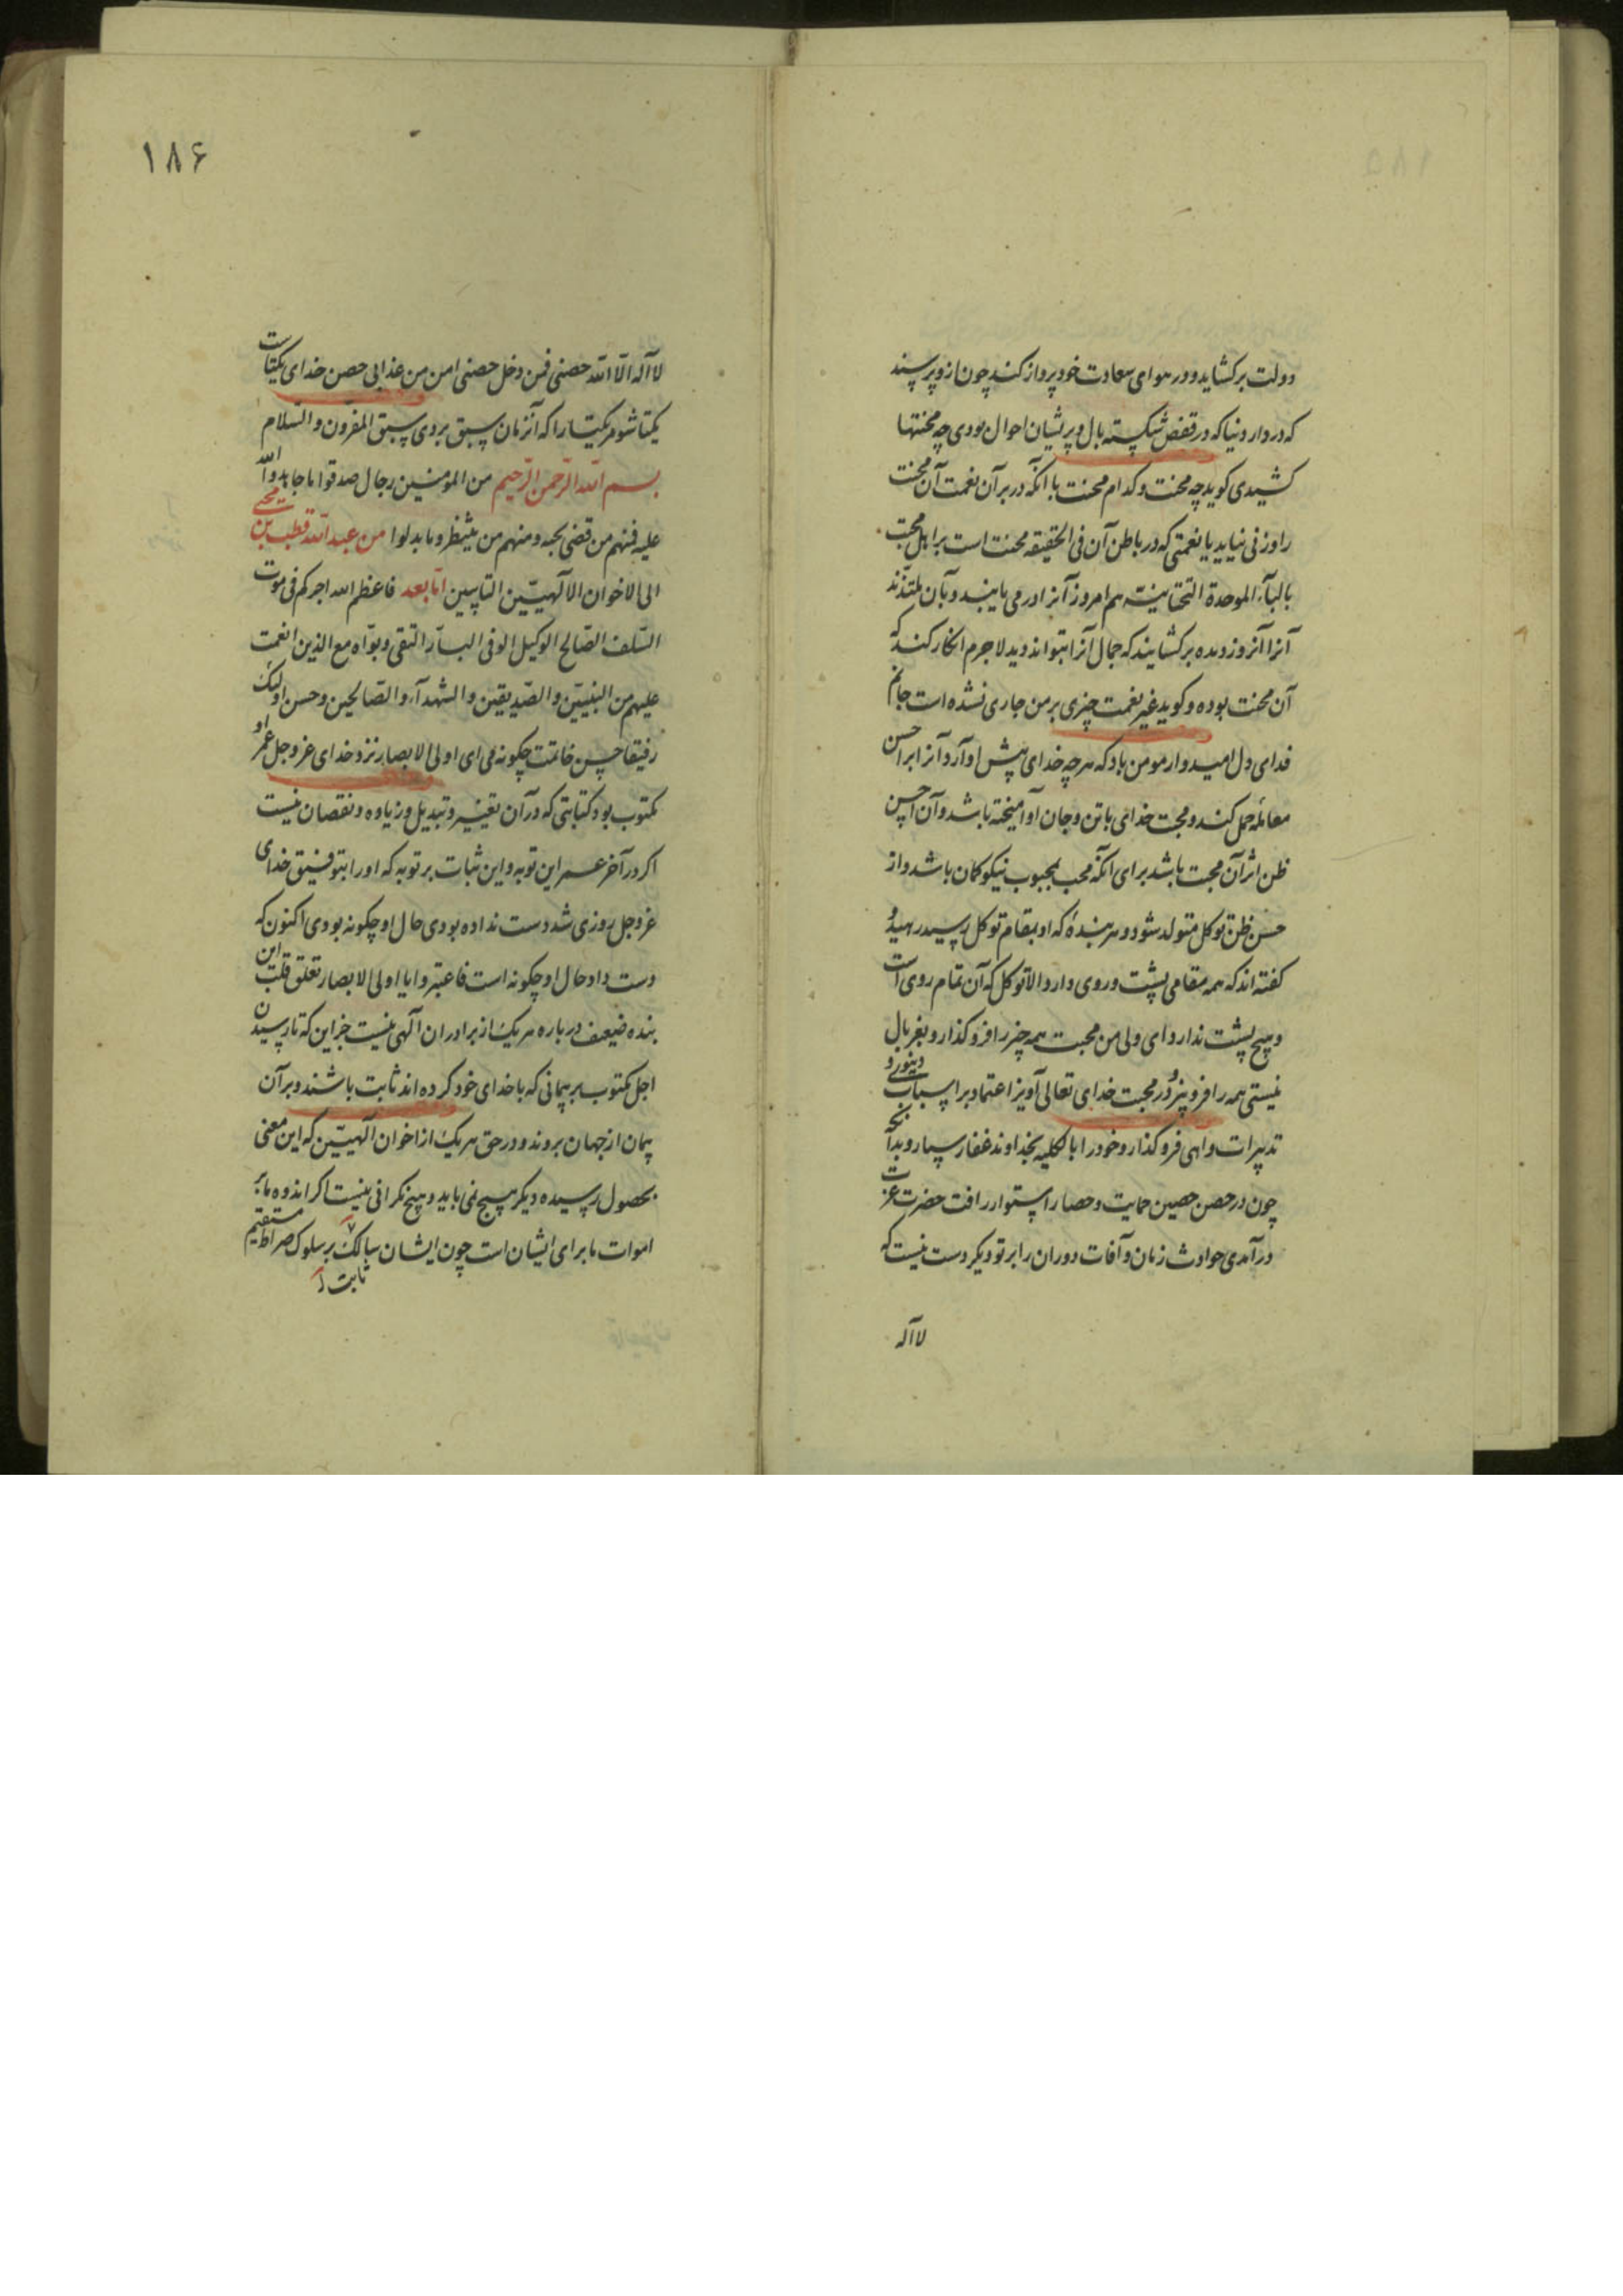 دولت برکشاید و در هوای سعادت خود پرواز کند چون ازو پرسند
که در دار دنیا که در قفص شکسته بال و پریشان احوال بودی چه محنتها
کشیدی کوید چه محنت و کدام محنت با آنکه در بر آن نعمت آن محنت
را وزنی نیاید یا نعمتی که در باطن آن فی الحقیقه محنت است بر اهل محبت
بالبآء الموحدة التحتانیة هم امروز آنرا در می یابند و بآن ملتذند
آنرا آنروز دیده برکشایند که جمال آنرا بتوانند دید لا جرم انکار کند که
آن محنت بوده و کوید غیر نعمت چیزی بر من جاری نشده است جانم
فدای دل امیدوار مومن باد که هر چه خدای پیش او آرد آنرا بر احسن
معامله حمل کند و محبت خدای با تن و جان او آمیخته باشد و آن احسن
ظن اثر آن محبت باشد برای آنکه محب بمحبوب نیکو کمان باشد و از
حسن ظن توکل متولد شود و هر بندهٔ که او بمقام توکل رسید رهید و
کفته اند که همه مقامی پشت و روی دارد الا توکل که آن تمام روی است
و هیچ پشت ندارد ای ولی من محبت همه چیز را فرو کذار و بغربال
نیستی همه را فرو بیز و در محبت خدای تعالی آویز اعتماد بر اسباب دنیوی و
تدبیرات واهی فرو کذار و خود را بالکلیه بخداوند غفار سپار و بدانکه
چون در حصن حصین حمایت و حصار استوار رافت حضرت عزت
در آمدی حوادث زمان و آفات دوران را بر تو دیکر دست نیست که
لا آله
۱۸۶
لا آله الّا الله حصنی فمن دخل حصنی امن من عذابی حصن خدای یکتاست
یکتا شو مر یکتا را که آنزمان سبق بردی سبق المفرون و السّلام
بسم الله الرّحمن الرّحیم من المومنین رجال صدقوا ما عاهدوا الله
علیه فمنهم من قضی نحبه و منهم من ینتظر و ما بدلوا من عبد الله قطب بن محیی
الی الاخوان الآلهیّین التایبین امّا بعد فاعظم الله اجرکم فی موت
السّلف الصّالح الوکیل الوفی البارّ التقی و بوّاه مع الذین انعمت
علیهم من النبییّن و الصّدیقین و الشهدآء و الصّالحین و حسن اولیک
رفیقا حسن خاتمت چکونه می ای اولی الابصار نزد خدای عز و جل عمر او
مکتوب بود کتابتی که در آن تغییر و تبدیل و زیاده و نقصان نیست
اکر در آخر عمر این توبه و این ثبات بر توبه که او را بتوفیق خدای
عز و جل روزی شد دست نداده بودی حال او چکونه بودی اکنون که
دست داد حال او چکونه است فاعتبروا یا اولی الابصار تعلق قلب این
بنده ضعیف در باره هر یک از برادران آلهی نیست جز این که تا رسیدن
اجل مکتوب بر پیمانی که با خدای خود کرده اند ثابت باشند و بر آن
پیمان از جهان بروند و در حق هر یک از اخوان آلهییّن که این معنی
بحصول رسیده دیکر هیچ نمی باید و هیچ نکرانی نیست اکر اندوه ما بر
اموات ما برای ایشان است چون ایشان سالک بر سلوک صراط مستقیم
ثابت